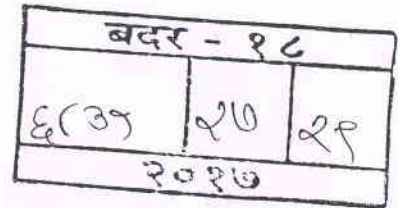 बदर - १८
६८३१ २७ २९
२०१७